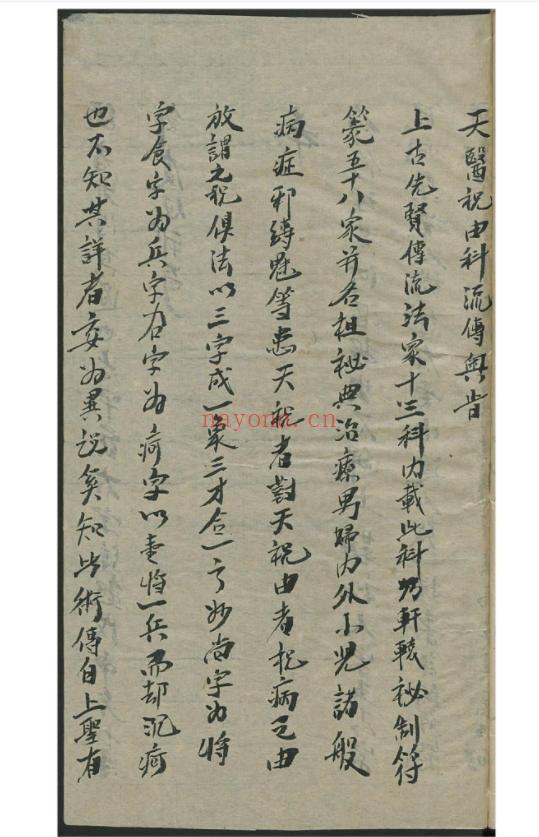 天醫祝由科流傳奧旨
上古先賢傳流法家十三科内載此科乃軒轅祕制符
篆五十八家并名祖祕典治療男婦内外小児諸般
病症邪縛魅等患天祝者對天祝由者祝病之由
故謂之祝俱法以三字成一家三才合一之妙尚字为將
字食字为兵字名字为疴字以將一兵而却沉疴
也不知其詳者妄为異説矣知此術傳自上聖有
nayona.cn